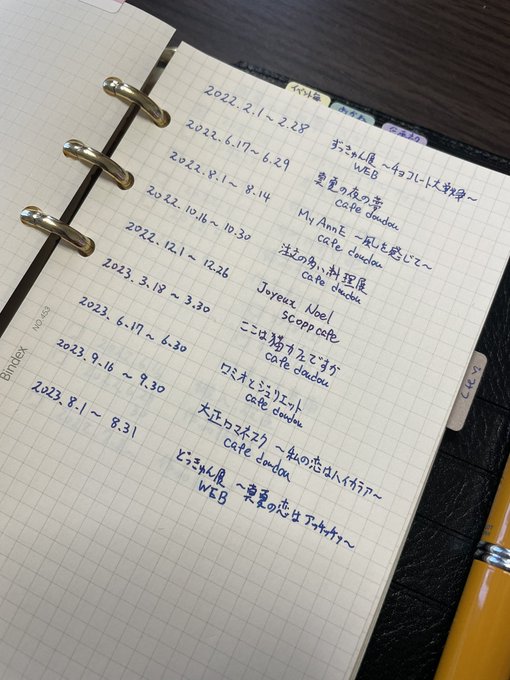 イベント毎
2022.2.1〜2.28
ずっきゅん展 〜チョコレート大戦争〜
WEB
2022.6.17〜6.29
真夏の夜の夢
cafe doudou
2022.8.1〜8.14
My AnnE 〜風を感じて〜
cafe doudou
2022.10.16〜10.30
注文の多い料理展
cafe doudou
2022.12.1〜12.26
Joyeux Noel
scopp cafe
2023.3.18〜3.30
ここは猫カフェですか
cafe doudou
2023.6.17〜6.30
ロミオとジュリエット
cafe doudou
2023.9.16〜9.30
大正ロマネスク 〜私の恋はハイカラア〜
cafe doudou
2023.8.1〜8.31
どっきゅん展 〜真夏の恋はアッチッチッ〜
WEB
Bindex
NO.453